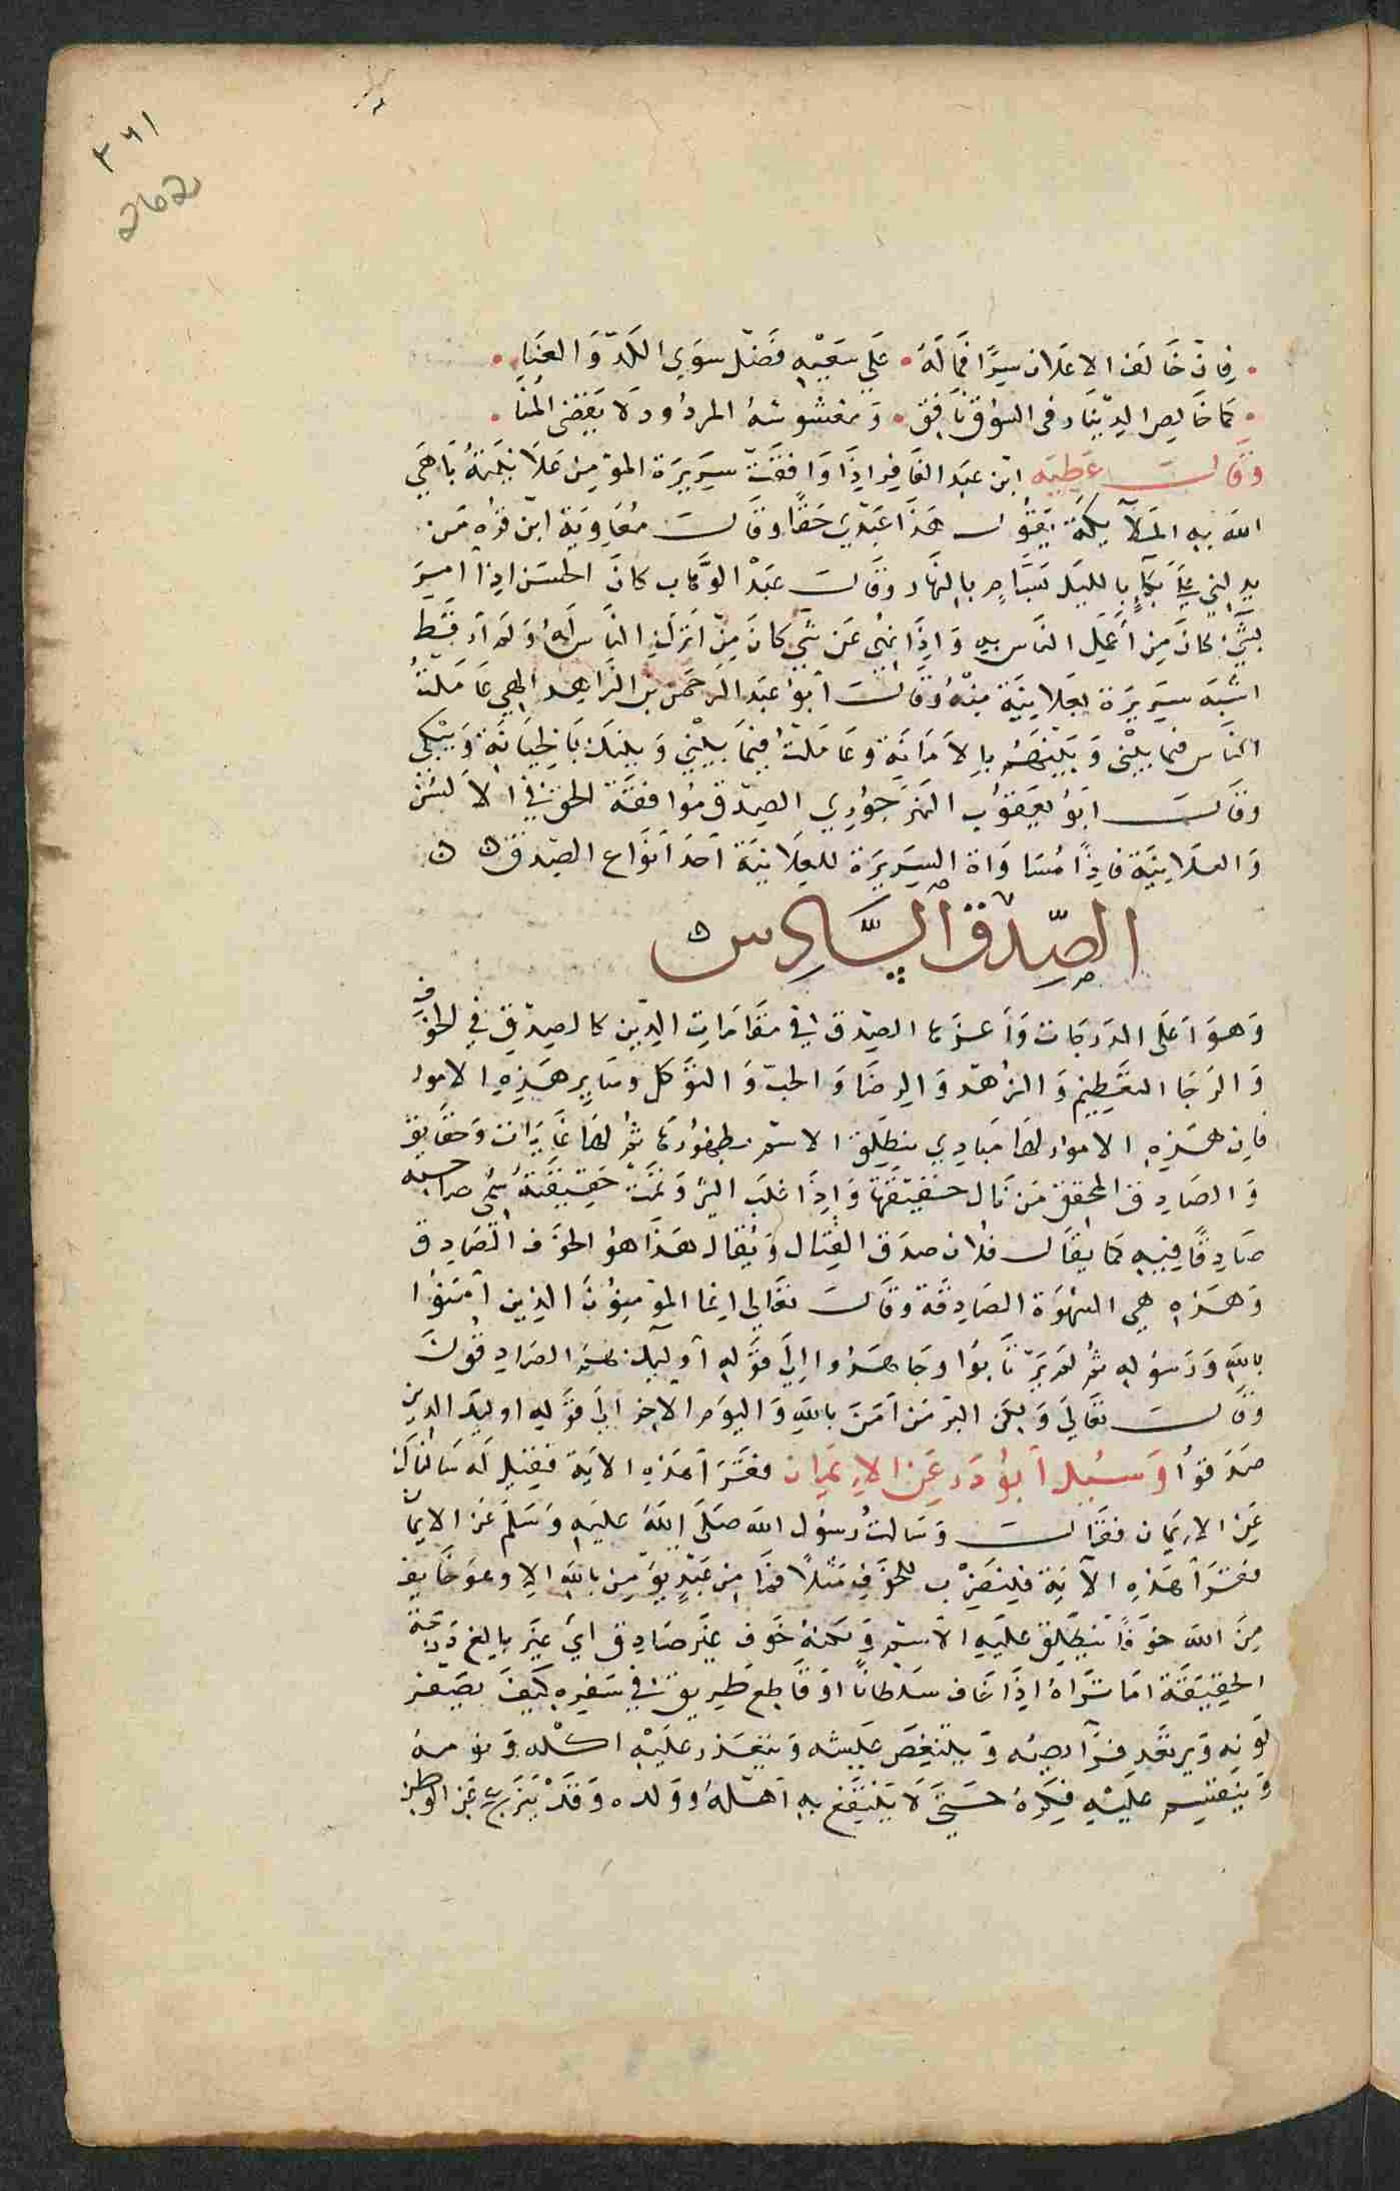 ٢٦١
262
فان خالف الاعلان سرا فما له • على سعيه فضل سوى الكد والعنا •
كما خالص الدينار في السوق نافق • ومغشوشه المردود لا يقضى المنا •
وقال عطيه ابن عبد الغافر اذا وافقت سريرة المؤمن علانيته باهي
الله به الملآيكة يقول هذا عبدي حقا وقال معاوية ابن قره من
يدلني على بكاءٍ بالليل بسام بالنهار وقال عبد الواحد كان الحسن اذا امر
بشي كان من اعمل الناس به واذا نهى عن شي كان من اترك الناس له ولم ار قط
اشبه سريرة بعلانية منه وقال ابو عبد الرحمن بن الزاهد الهي عاملت
الناس فيما بيني وبينهم بالامانة وعاملتك فيما بيني وبينك بالخيانة ويبكي
وقال ابو يعقوب النهرجوري الصدق موافقة الحق في السر
والعلانية فاذا مساواة السريرة للعلانية احد انواع الصدق ه ه
الصدق السادس ه
وهو اعلى الدرجات واعزها الصدق في مقامات الدين كالصدق في الخوف
والرجا التعظيم والزهد والرضا والحب والتوكل وساير هذه الامور
فان هذه الامور لها مبادي ينطلق الاسم بظهورها ثم لها غايات وحقايق
والصادق المحقق من نال حقيقتها واذا غلب الشي وتمت حقيقته سمي صاحبه
صادقا فيه كما يقال فلان صدق القتال ويقال هذا هو الخوف الصادق
وهذه هي الشهوة الصادقة وقال تعالى انما المؤمنون الذين آمنوا
بالله ورسوله ثم لم يرتابوا وجاهدوا الى قوله اوليك هم الصادقون
وقال تعالى ولكن البر من آمن بالله واليوم الاخر الى قوله اوليك الذين
صدقوا وسيل ابو ذر عن الايمان فقرأ هذه الاية فقيل له سالناك
عن الايمان فقال وسالت رسول الله صلى الله عليه وسلم عن الايمان
فقرأ هذه الآية فلنضرب للخوف مثلا فما من عبد يؤمن بالله الا وهو خايف
من الله خوفا ينطلق عليه الاسم ولكنه خوف غير صادق اي غير بالغ درجة
الحقيقة اما تراه اذا خاف سلطانا او قاطع طريق في سفره كيف يصفر
لونه ويرتعد فرآيصه ويتنغص عليه عيشه ويتعذر عليه اكله ونومه
وينقسم عليه فكره حتي لا ينتفع به اهله وولده وقد ينزعج عن الوطن